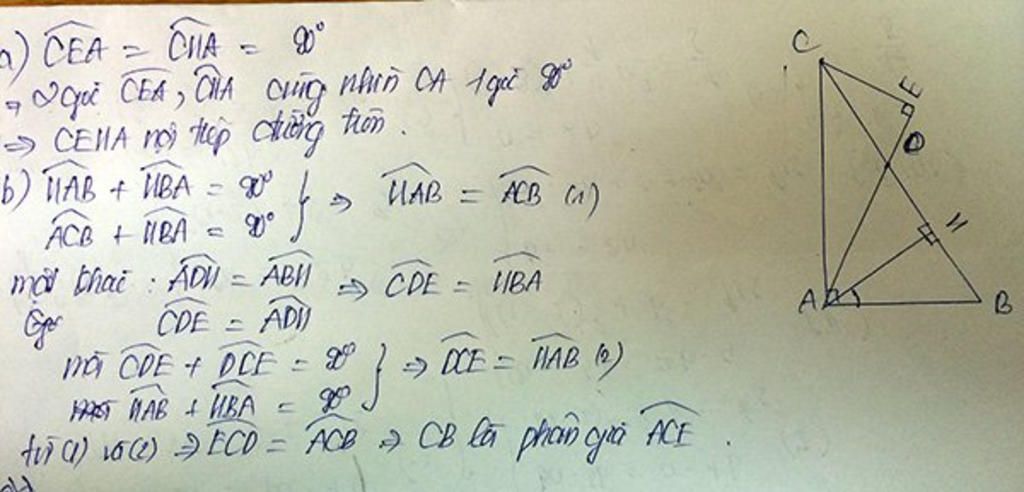 a) CEA = CHA = 90°
⇒ 2 góc CEA, CHA cùng nhìn CA 1 góc 90°
⇒ CEHA nội tiếp đường tròn.
b) HAB + HBA = 90°
ACB + HBA = 90° } ⇒ HAB = ACB (1)
mặt khác : ADH = ABH ⇒ CDE = HBA
CDE = ADH
mà CDE + DCE = 90°
HAB + HBA = 90° } ⇒ DCE = HAB (2)
từ (1) và (2) ⇒ ECD = ACB ⇒ CB là phân giác ACE .
C
E
D
H
A
B